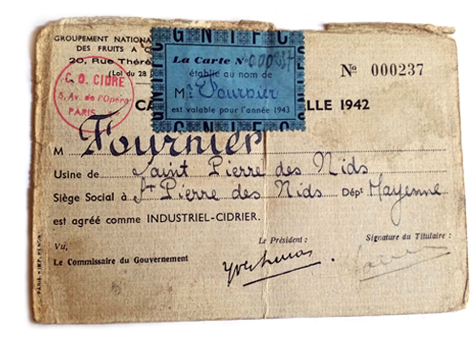 GROUPEMENT NATIONAL
DES FRUITS A C
20, Rue Thérè
(Loi du 28
G N I F C
La Carte No 000237
établie au nom de
M. Fournier
est valable pour l'année 1943
G N I F C
No 000237
C. O. CIDRE
5, Av. de l'Opéra
PARIS
CA
LLE 1942
M Fournier
Usine de Saint Pierre des Nids
Siège Social à St Pierre des Nids Dépt Mayenne
est agréé comme INDUSTRIEL-CIDRIER.
Vu,
Le Commissaire du Gouvernement
Le Président :
Signature du Titulaire :